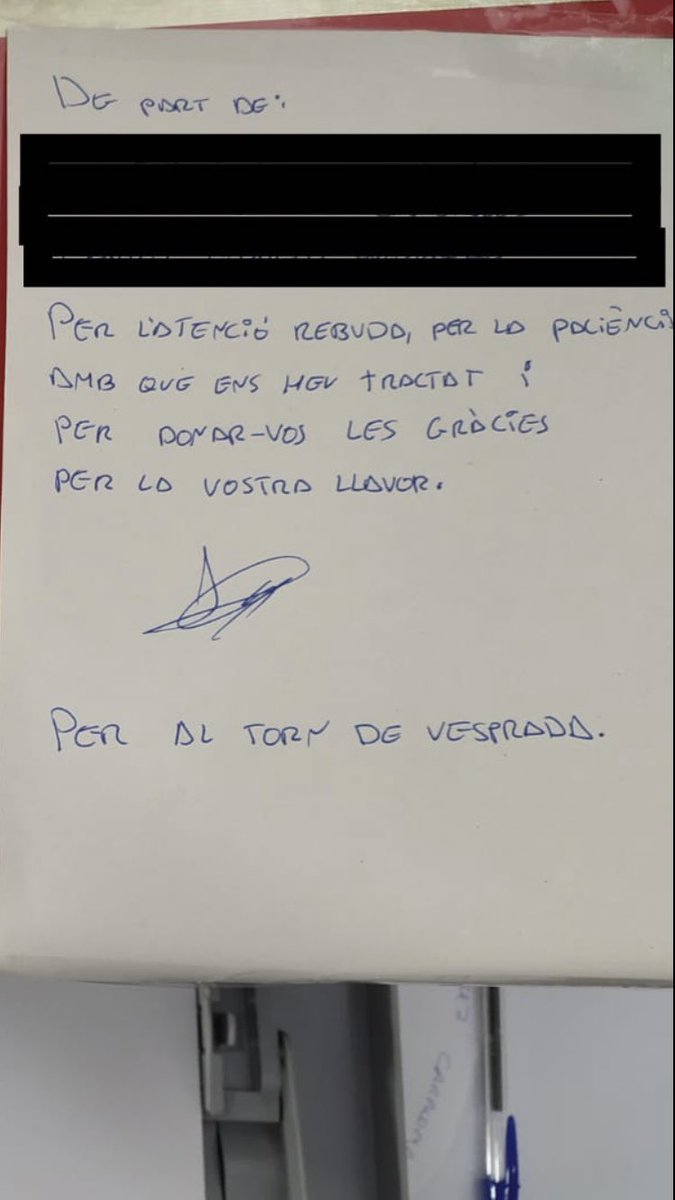 DE PART DE:
PER L'ATENCIÓ REBUDA, PER LA PACIÈNCIA
AMB QUÈ ENS HEU TRACTAT I
PER DONAR-VOS LES GRÀCIES
PER LA VOSTRA LLAVOR.
PER AL TORN DE VESPRADA.